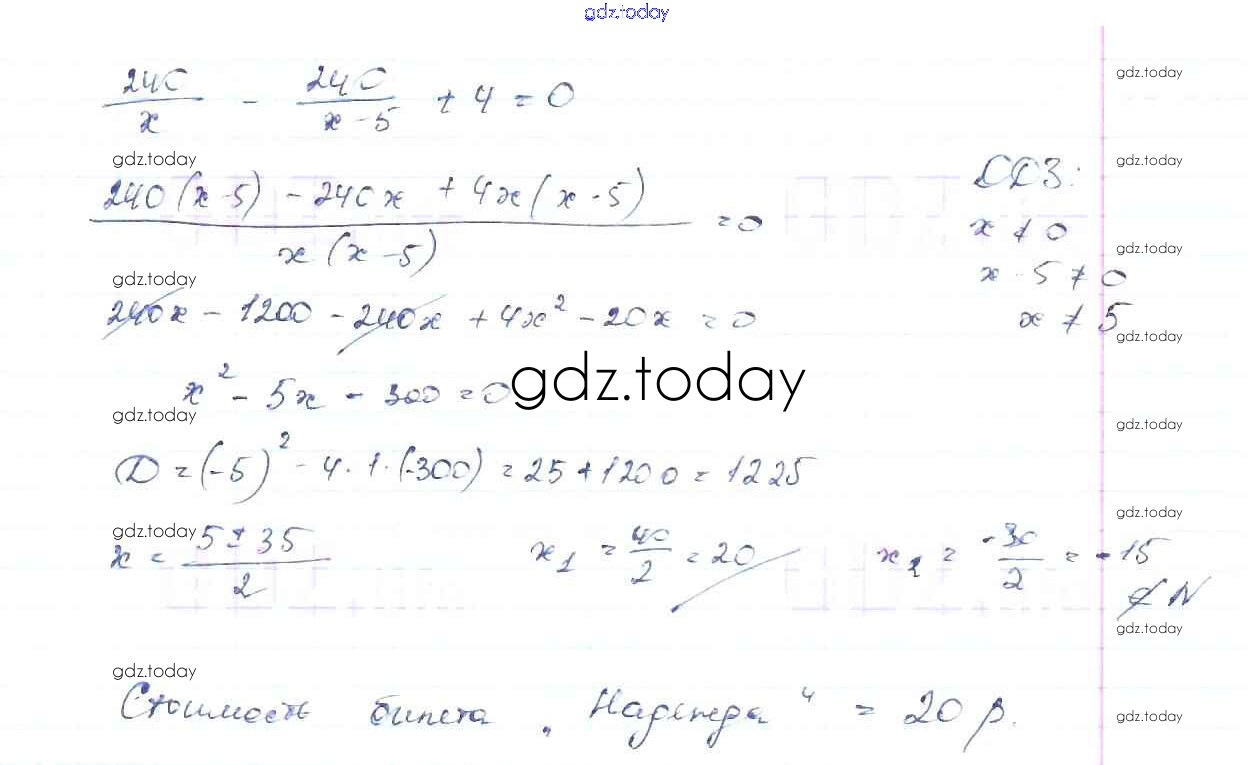 gdz.today
240/x - 240/(x - 5) + 4 = 0
gdz.today
gdz.today
(240(x-5) - 240x + 4x(x-5))/(x(x-5)) = 0
ОДЗ:
gdz.today
x ≠ 0
gdz.today
x - 5 ≠ 0
gdz.today
240x - 1200 - 240x + 4x² - 20x = 0
x ≠ 5
gdz.today
x² - 5x - 300 = 0
gdz.today
gdz.today
gdz.today
D = (-5)² - 4·1·(-300) = 25 + 1200 = 1225
gdz.today
gdz.today
x = (5 ± 35)/2 x₁ = 40/2 = 20 x₂ = -30/2 = -15 ∉ N
gdz.today
gdz.today
Стоимость билета „Надежда“ = 20 р.
gdz.today